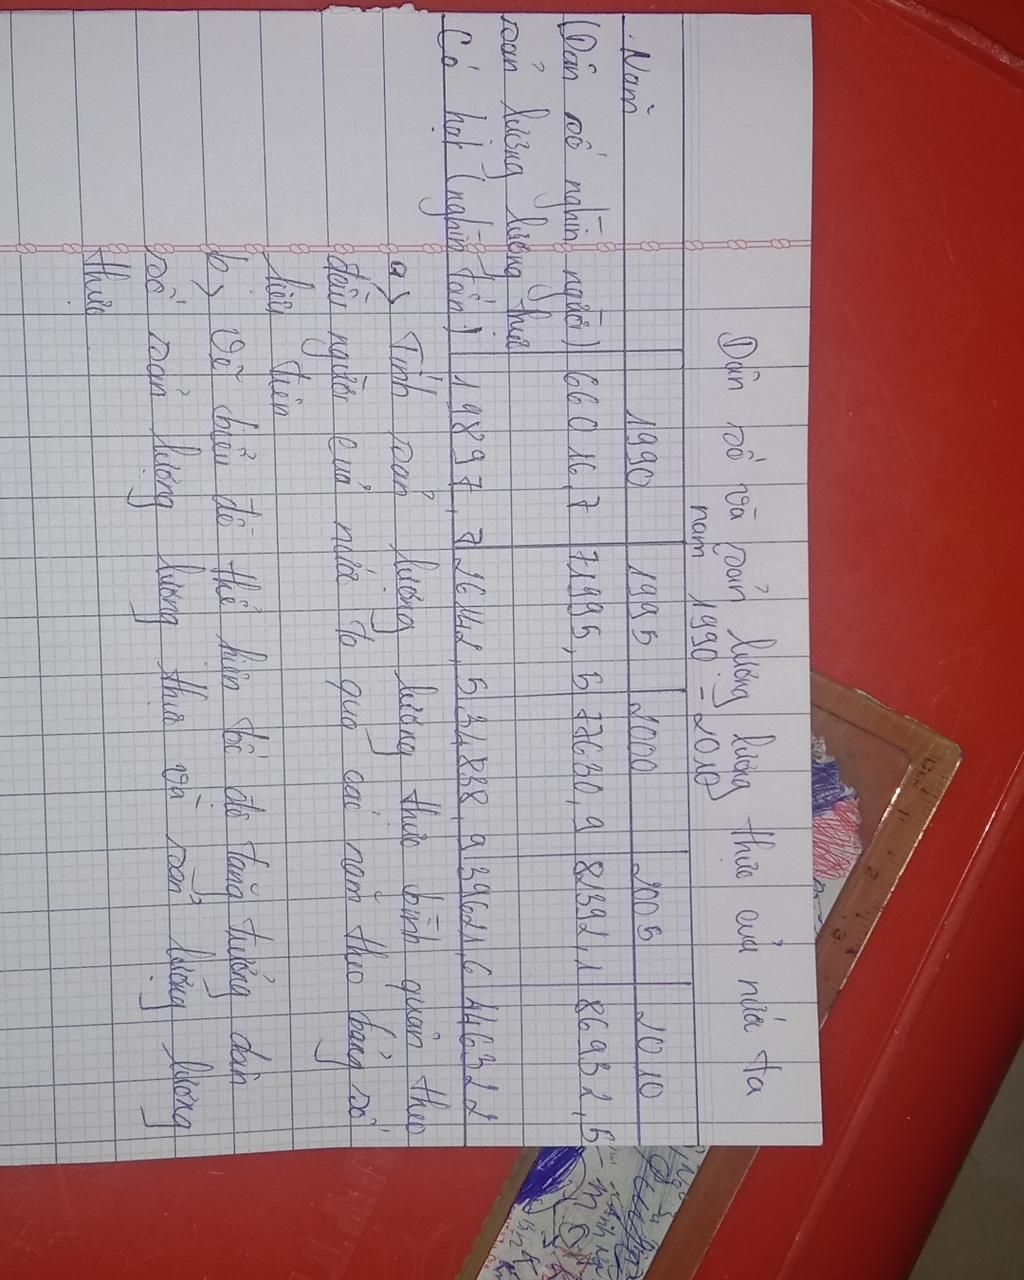 Dân số và sản lượng lương thực của nước ta
năm 1990 - 2010
Năm 1990 1995 2000 2005 2010
(Dân số nghìn người) 66016,7 71995,5 77630,9 8392,1 86932,5
sản lượng lương thực
Có hạt (nghìn tấn) 19897,7 26142,5 34838,9 39621,6 446322
a) Tính sản lượng lương thực bình quân theo
đầu người của nước ta qua các năm theo bảng số
liệu trên
b) Vẽ biểu đồ thể hiện tốc độ tăng trưởng dân
số sản lượng lương thực và sản lượng lương
thực